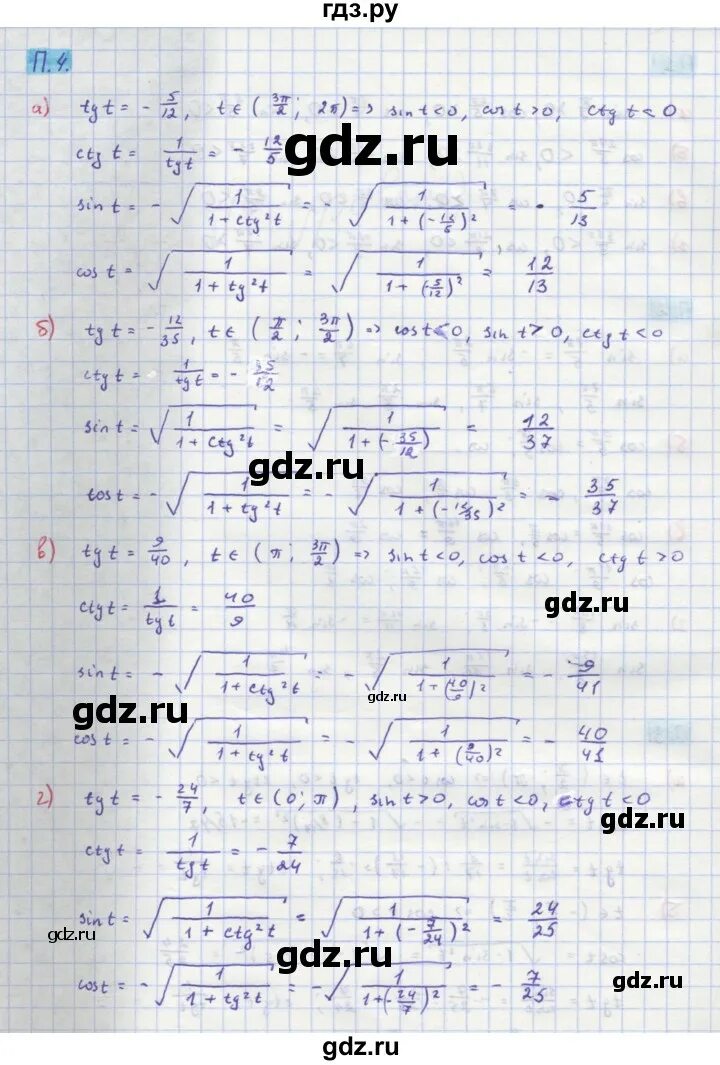 гдз.ру
П.4.
а) tg t = - 5/12, t ∈ (3π/2; 2π) => sin t < 0, cos t > 0, ctg t < 0
ctg t = 1/tg t = - 12/5
gdz.ru
sin t = - √(1/(1 + ctg²t)) = - √(1/(1 + (-12/5)²)) = - 5/13
gdz.ru
cos t = √(1/(1 + tg²t)) = √(1/(1 + (-5/12)²)) = 12/13
б) tg t = - 12/35, t ∈ (π/2; 3π/2) => cos t < 0, sin t > 0, ctg t < 0
ctg t = 1/tg t = - 35/12
gdz.ru
sin t = √(1/(1 + ctg²t)) = √(1/(1 + (-35/12))) = 12/37
gdz.ru
cos t = - √(1/(1 + tg²t)) = - √(1/(1 + (-12/35)²)) = - 35/37
в) tg t = 9/40, t ∈ (π; 3π/2) => sin t < 0, cos t < 0, ctg t > 0
ctg t = 1/tg t = 40/9
gdz.ru
sin t = - √(1/(1 + ctg²t)) = - √(1/(1 + (40/9)²)) = - 9/41
gdz.ru
gdz.ru
cos t = - √(1/(1 + tg²t)) = - √(1/(1 + (9/40)²)) = - 40/41
г) tg t = - 24/7, t ∈ (0; π), sin t > 0, cos t < 0, ctg t < 0
gdz.ru
ctg t = 1/tg t = - 7/24
sin t = √(1/(1 + ctg²t)) = √(1/(1 + (-7/24)²)) = 24/25
gdz.ru
gdz.ru
cos t = - √(1/(1 + tg²t)) = - √(1/(1 + (-24/7)²)) = - 7/25
gdz.ru
gdz.ru